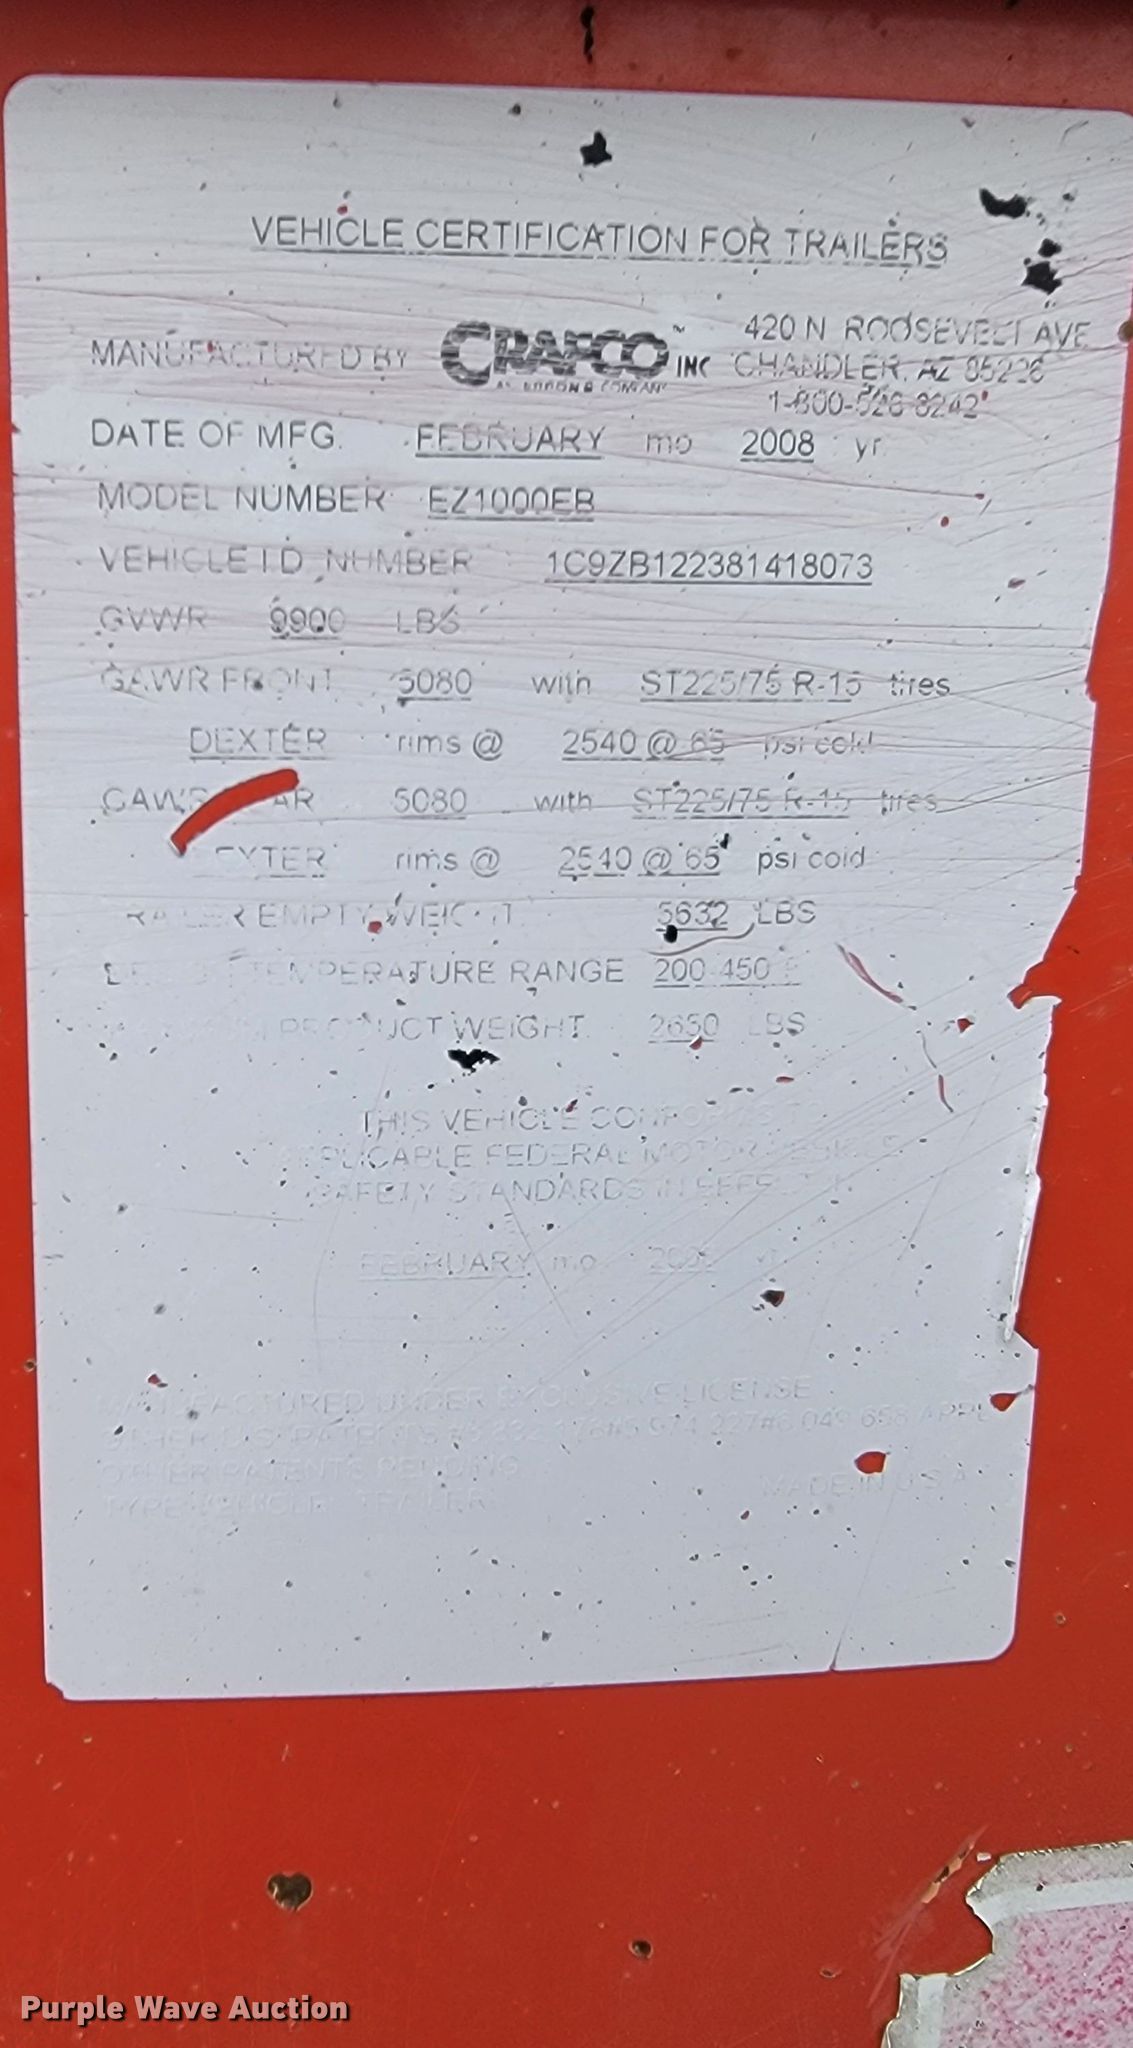 VEHICLE CERTIFICATION FOR TRAILERS
MANUFACTURED BY CRAFCO INC 420 N ROOSEVELT AVE
CHANDLER, AZ 85226
1-800-528-8242
DATE OF MFG. FEBRUARY mo 2008 yr
MODEL NUMBER EZ1000EB
VEHICLE I D NUMBER 1C9ZB122381418073
GVWR 9900 LBS
GAWR FRONT 5080 with ST225/75 R-15 tires
DEXTER rims @ 2540 @ 65 psi cold
5080 with ST225/75 R-15 tires
rims @ 2540 @ 65 psi cold
EMPTY 5632 LBS
TEMPERATURE RANGE 200-450
PRODUCT WEIGHT 2650 LBS
THIS VEHICLE
APPLICABLE FEDERAL MOTOR VEHICLE
SAFETY STANDARDS IN
FEBRUARY mo
MANUFACTURED UNDER EXCLUSIVE LICENSE
OTHER PATENTS PENDING
TRAILER MADE IN U.S.A.
Purple Wave Auction